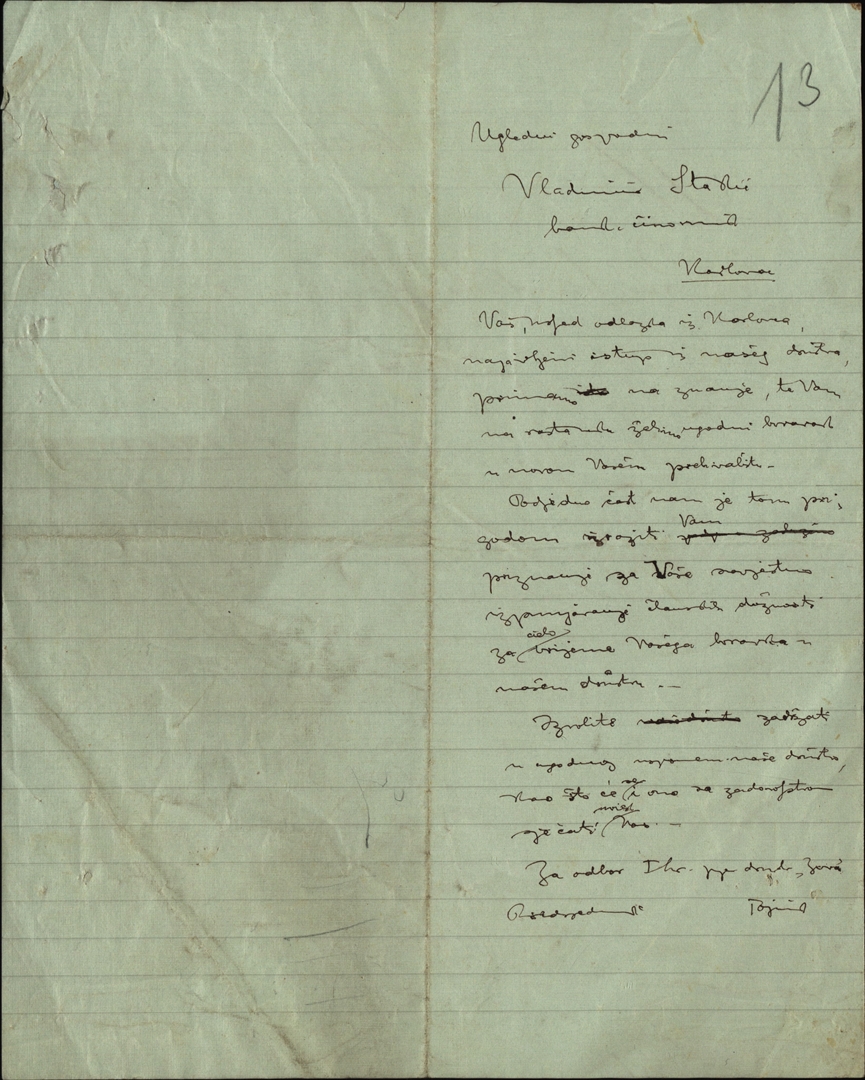 13
Ugledni gospodin
Vladimir Stakić
bank. činovnik
Karlovac
Vaš, usljed odlazka iz Karlovca,
najavljeni istup iz našeg društva,
primamo na znanje, te Vam
na rastanku želimo ugodni boravak
u novom Vašem prebivalištu.
Podjedno čast nam je tom pri-
godom izraziti Vam
priznanje za Vaše savjestno
izpunjavanje članskih dužnosti
za cielo vrijeme Vašega boravka u
našem društvu. —
Izvolite zadržati
u ugodnoj uspomeni naše društvo,
kao što će se i ono sa zadovoljstvom
sjećati uviek Vas. —
Za odbor I hr. pjev. družt. „Zora"
Predsjednik Tajnik